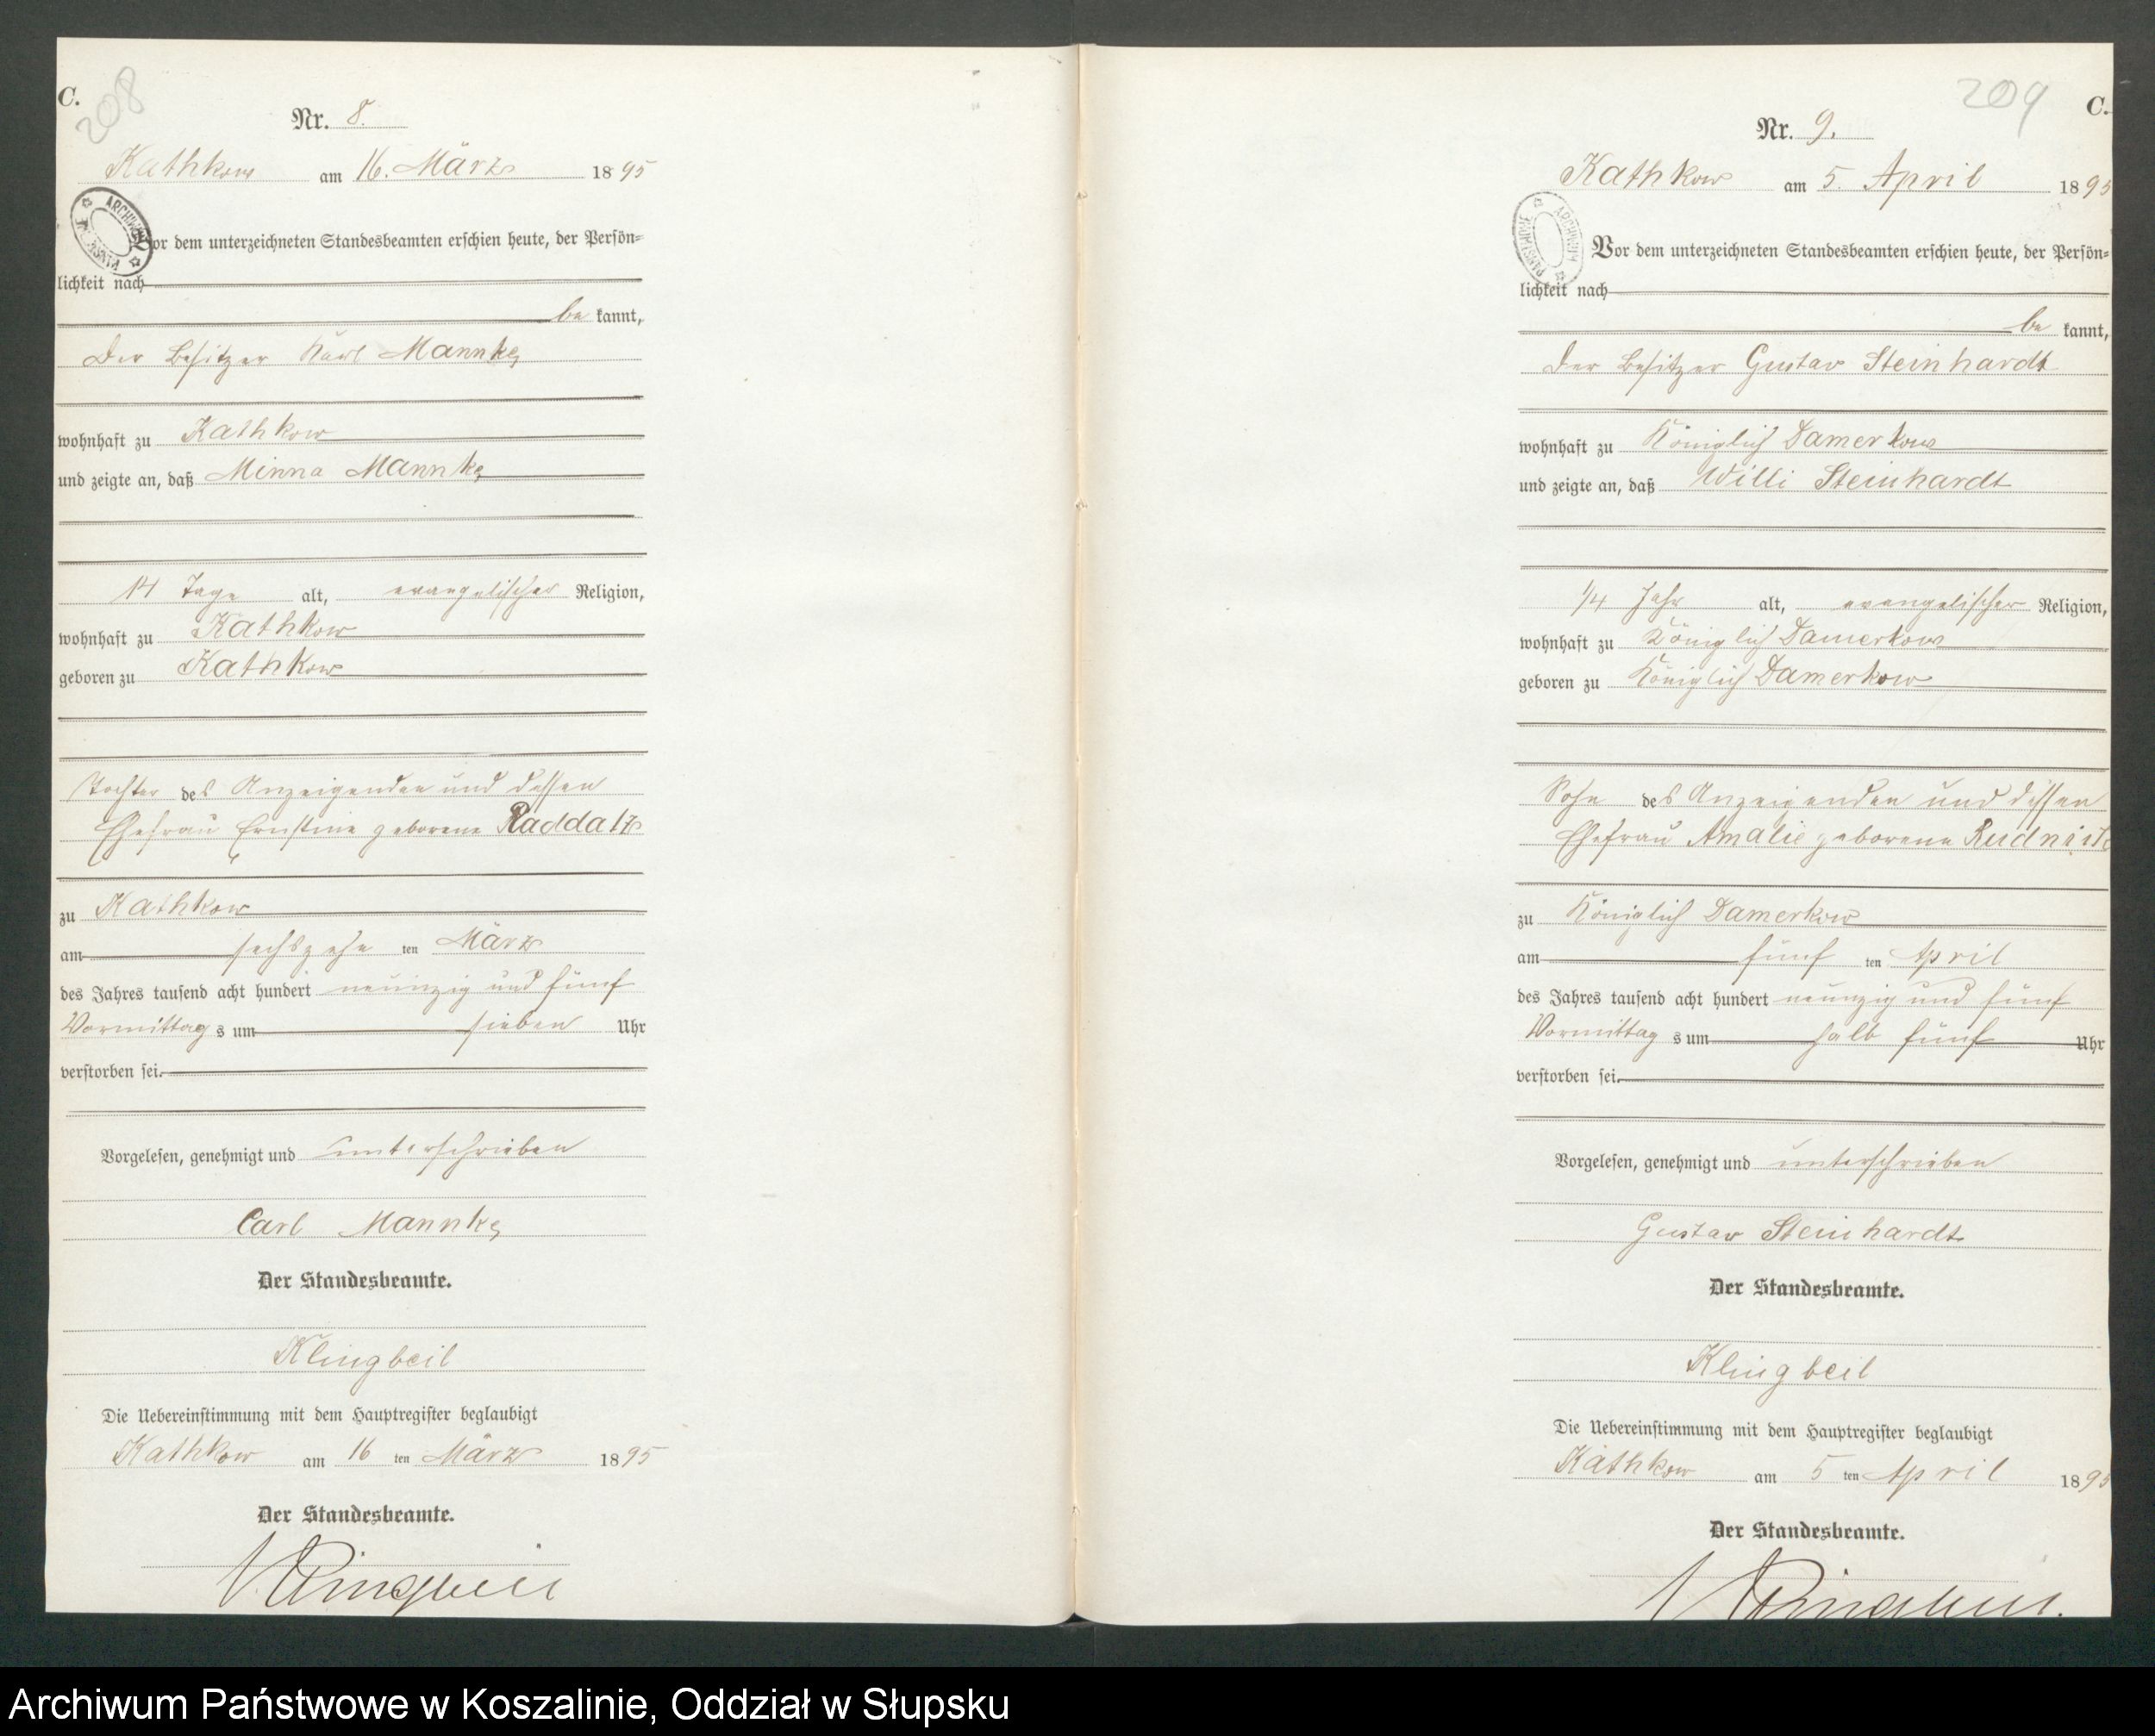 C.
208
Nr. 8.
Kathkow am 16. März 1895
ARCHIWUM PAŃSTW.
Vor dem unterzeichneten Standesbeamten erschien heute, der Persön=
lichkeit nach
be kannt,
der Besitzer Karl Mannke
wohnhaft zu Kathkow
und zeigte an, daß Minna Mannke
14 Tage alt, evangelischer Religion,
wohnhaft zu Kathkow
geboren zu Kathkow
Tochter des Anzeigenden und dessen
Ehefrau Ernstine geborene Raddatz
zu Kathkow
am sechszehn ten März
des Jahres tausend acht hundert neunzig und fünf
Vormittag s um sieben Uhr
verstorben sei.
Vorgelesen, genehmigt und unterschrieben
Carl Mannke
Der Standesbeamte.
Klingbeil
Die Uebereinstimmung mit dem Hauptregister beglaubigt
Kathkow am 16 ten März 1895
Der Standesbeamte.
Klingbeil
209
C.
Nr. 9.
Kathkow am 5. April 1895
ARCHIWUM PAŃSTWOWE
Vor dem unterzeichneten Standesbeamten erschien heute, der Persön=
lichkeit nach
be kannt,
der Besitzer Gustav Steinhardt
wohnhaft zu Königlich Damerkow
und zeigte an, daß Willi Steinhardt
1/4 Jahr alt, evangelischer Religion,
wohnhaft zu Königlich Damerkow
geboren zu Königlich Damerkow
Sohn des Anzeigenden und dessen
Ehefrau Amalie geborene
zu Königlich Damerkow
am fünf ten April
des Jahres tausend acht hundert neunzig und fünf
Vormittag s um halb fünf Uhr
verstorben sei.
Vorgelesen, genehmigt und unterschrieben
Gustav Steinhardt
Der Standesbeamte.
Klingbeil
Die Uebereinstimmung mit dem Hauptregister beglaubigt
Kathkow am 5 ten April 1895
Der Standesbeamte.
Klingbeil.
Archiwum Państwowe w Koszalinie, Oddział w Słupsku